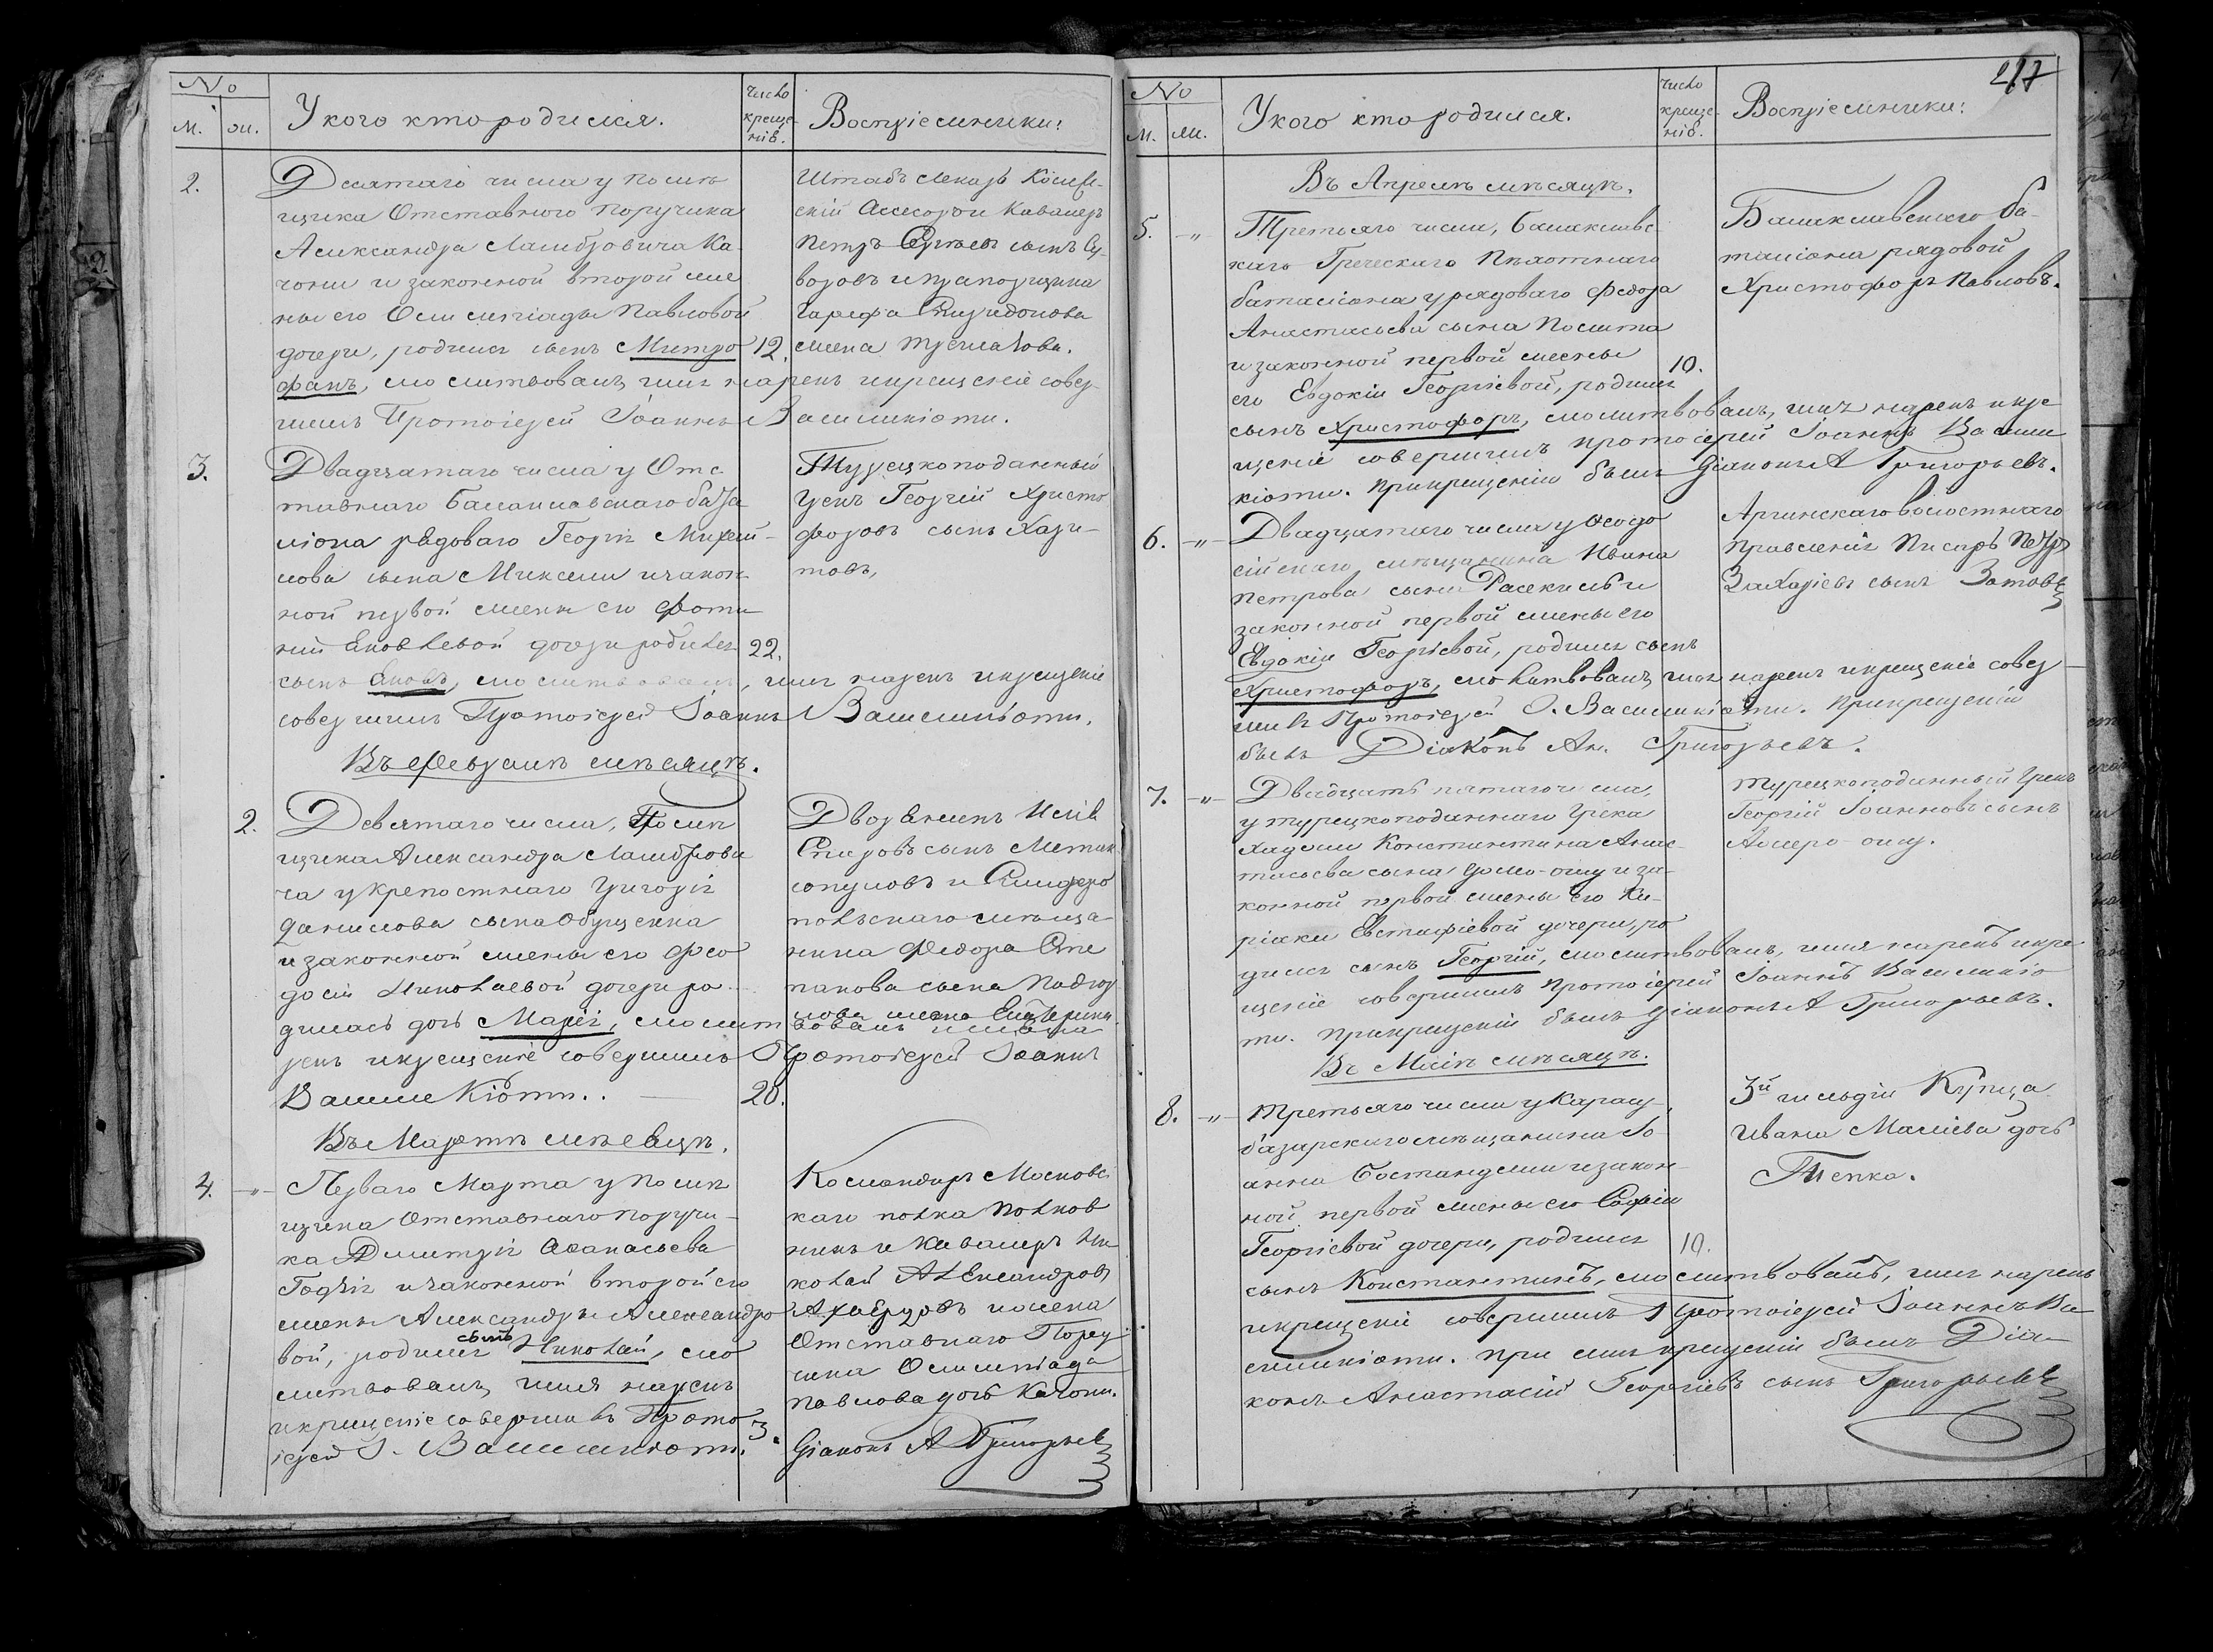 No
м. ж.
У кого кто родился.
Число креще-нiя.
Воспрiемники:
2.
Десятаго числа у помѣ
щика Отставного Поручика
Александра Ламбровича Ка-
чони и законной второй же
ны его Олимпiады Павловой
дочери, родился сынъ Митро
12.
фанъ, молитвовалъ, имя нарекъ и крещенiе совер-
шилъ Протоiерей Iоаннъ Василикiоти.
Штабъ Лекарь Коллеж-
скiй Асесоръ и Кавалеръ
Петръ Сергѣевъ сынъ Су-
воровъ и прапорщика
жена
3.
Двадцатаго числа у Отс
тавнаго Балаклавскаго бата
лiона рядоваго Георгiя Михай-
лова сына Миксели и закон-
ной первой жены его Фоти
нiи Яковлевой дочери родился
22.
сынъ Яковъ, молитвовалъ, имя нарекъ и крещенiе
совершилъ Протоiерей Iоаннъ Василикiоти.
Турецкоподанный
Грекъ Георгiй Христо
форовъ сынъ Хари-
товъ,
Въ Февралѣ мѣсяцѣ.
2.
Девятаго числа, Помѣ
щика Александра Ламброви
ча у крепостнаго Григорiя
Данилова сына Обущенка
и законной жены его Фео
досiи Николаевой дочери ро-
дилась дочь Марiя, молитвовалъ имя на
рекъ и крещенiе совершилъ Протоiерей Iоаннъ
Василикiоти..
20.
Дворянинъ Илiя
Спировъ сынъ Метак
сопуловъ и Симферо
польскаго мѣща-
нина Федора Сте
панова сына Подгор
лова жена Екатерина
Въ Мартѣ мѣсяцѣ.
4. -"-
Перваго Марта у помѣ
щика Отставнаго поручи-
ка Дмитрiя Афанасьева
и законной второй его
жены Александры Александро
вой, родился сынъ Николай, мо
литвовалъ, имя нарекъ
и крещенiе совершилъ Прото
3.
iерей I. Василикiоти.
Командиръ Московс
каго полка Полков
никъ и Кавалеръ Ни
колай Александровъ
Ахвердовъ и жена
Отставнаго Пору
чика Олимпiада
Павлова дочь Качони.
Дiаконъ А Григорьевъ
217
No
м. ж.
У кого кто родился.
Число креще-нiя.
Воспрiемники:
Въ Апрелѣ мѣсяцѣ.
5. -"-
Третьяго числа, Балаклавс-
каго Греческаго Пѣхотнаго
баталiона у рядоваго Федора
Анастасьева сына Полита
и законной первой жены
10.
его Евдокiи Георгiевой, родился
сынъ Христофоръ, молитвовалъ, имя нарекъ и кре
щенiе совершилъ протоiерей Iоаннъ Васили
кiоти. При крещенiи былъ дiаконъ А Григорьевъ.
Балаклавскаго ба-
талiона рядовой
Христофоръ Павловъ.
6. -"-
Двадцатаго числа у Феодо
сiйскаго мѣщанина Ивана
Петрова сына и
законной первой жены его
Евдокiи Георгiевой, родился сынъ
Христофоръ, молитвовалъ, имя нарекъ и крещенiе совер-
шилъ Протоiерей I. Василикiоти. При крещенiи
былъ Дiаконъ Ан. Григорьевъ.
Аргинскаго волостнаго
правленiя Писарь Петръ
Захарiевъ сынъ Зотовъ
7. -"-
Двадцать пятаго числа,
у турецкоподаннаго Грека
Константина Анас-
тасьева сына и за-
конной первой жены его Ки-
рiаки Евстафiевой дочери, ро
дился сынъ Георгiй, молитвовалъ, имя нарекъ и кре
щенiе совершилъ протоiерей Iоаннъ Василикiо
ти. При крещенiи былъ дiаконъ А Григорьевъ.
Турецкоподанный Грекъ
Георгiй Iоанновъ сынъ
Въ Маiѣ мѣсяцѣ.
8. -"-
Третьяго числа у Карасу-
базарскаго мѣщанина Iо
анна Бостанджи и закон-
ной первой жены его Софiи
Георгiевой дочери, родился
10.
сынъ Константинъ, молитвовалъ, имя нарекъ
и крещенiе совершилъ Протоiерей Iоаннъ Ва
силикiоти. При семъ крещенiи былъ Дiа-
конъ Анастасiй Георгiевъ сынъ Григорьевъ
3й гильдiи Купца
Ивана Малiева дочь